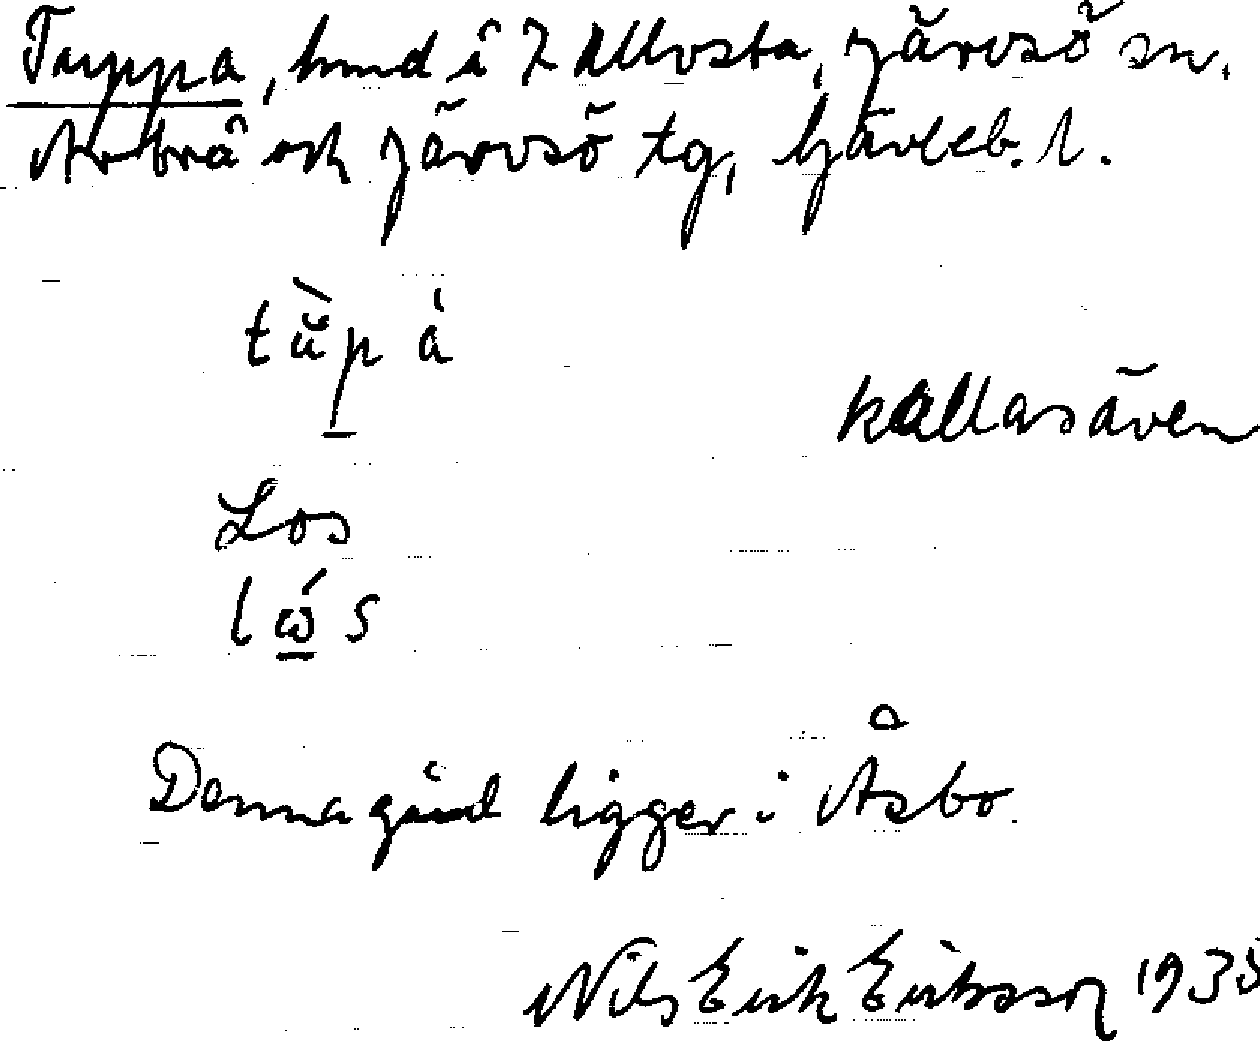 Tuppa, hmd i 7 Ullvsta, Järvsö sn.
Arbrå och Järvsö tg, Gävleb. l.
tu̇̆pa
kallas även
Los
lωs
Denna gård ligger i Åsbo.
Nils Erik Eriksson 1935